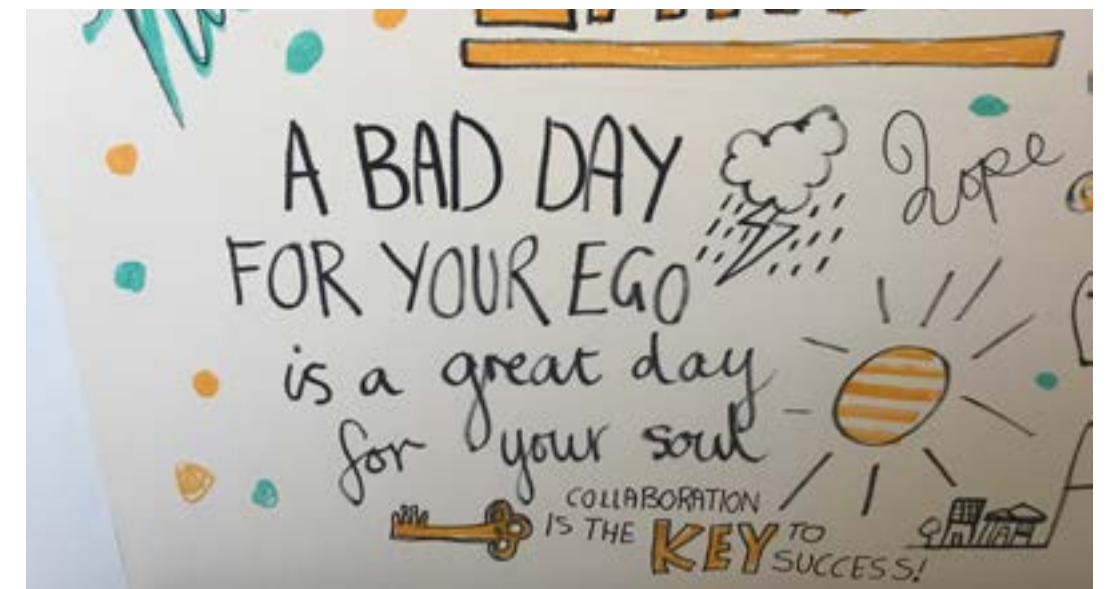 A BAD DAY
FOR YOUR EGO
is a great day
for your soul
Hope
COLLABORATION
IS THE KEY TO
SUCCESS!